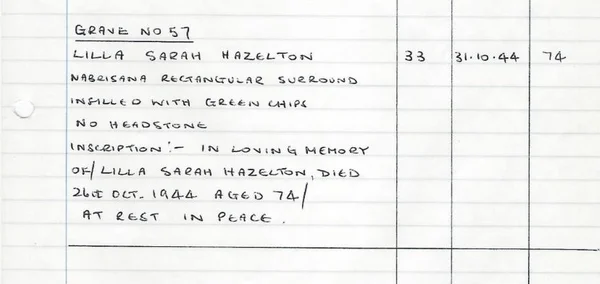 GRAVE NO 57
LILLA SARAH HAZELTON 33 31.10.44 74
NABRISANA RECTANGULAR SURROUND
INFILLED WITH GREEN CHIPS
NO HEADSTONE
INSCRIPTION:- IN LOVING MEMORY
OF/ LILLA SARAH HAZELTON, DIED
26th OCT. 1944 AGED 74/
AT REST IN PEACE.